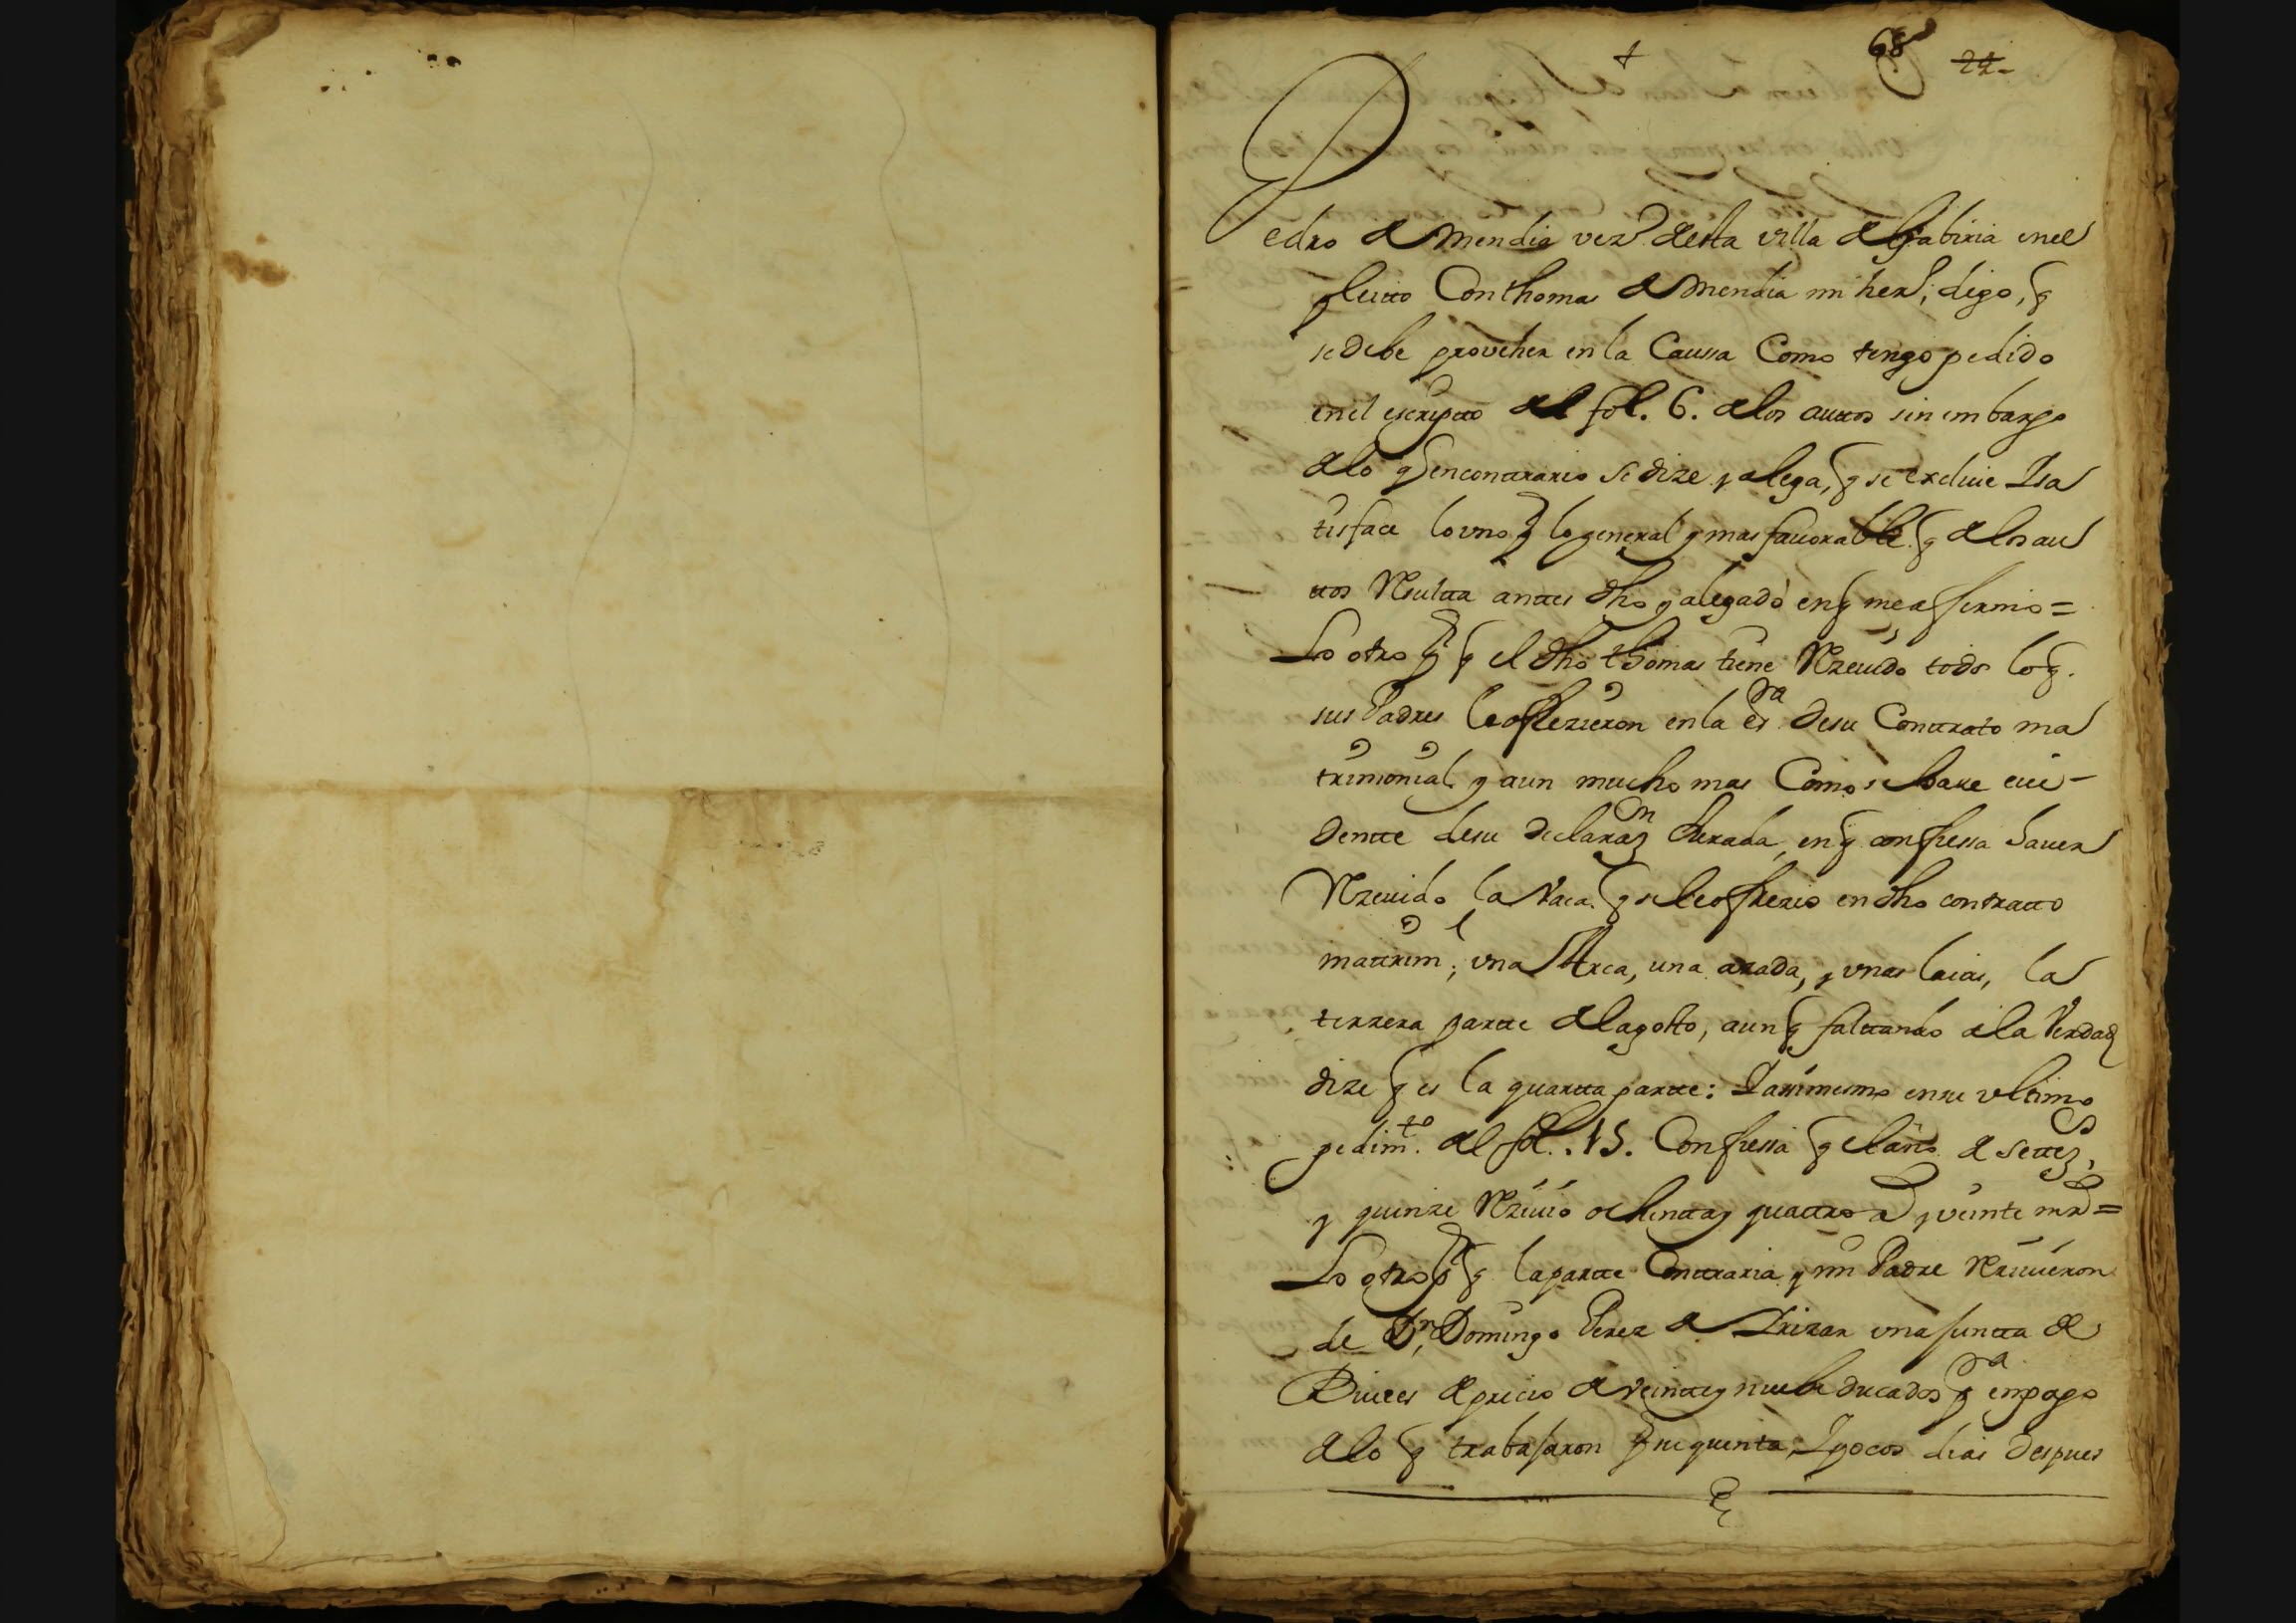 +
68 22
Pedro de Mendia vez.º desta villa de Gabiria en el
pleitto Con thomas de Mendia mi her.º, digo, q
se debe proveher en la Caussa Como tengo pedido
en el escriptto del fol. 6. de los auttos sin embargo
de lo q en conttrario se dize y alega, q se excluie I sa
tisface lo uno p.r lo general y mas favorable q de los au
ttos Resultta anttes dho y alegado en q me affirmo =
Lo otro p.r q el dho thomas tiene Rzeuido todo lo q.
sus Padres le offrezieron en la es.ra de su Conttrato ma
trimonial y aun mucho mas Como se hace eui-
dentte de su declaraz.n Jurada, en q confiessa hauer
Rzeuido la Vaca q se le offrezio en dho contratto
mattrim.l; una Arca, una azada, y unas laias, la
terzera partte del agosto, aun q faltando a la Verdad
dize q es la quartta partte: Y assimesmo en su ultimo
pedim.to del fol. 15. Confiessa q el año de settez.os
y quinze Rziuio ochentta y quattro d.s y veinte mrs =
Lo otro p.r q la partte Conttraria y mi Padre Rziuieron
de D.n Domingo Perez de Irizar una juntta de
Bueies de precio de Veintte y nuebe ducados p.a en pago
de lo q trabajaron p.r su quenta, I pocos dias despues